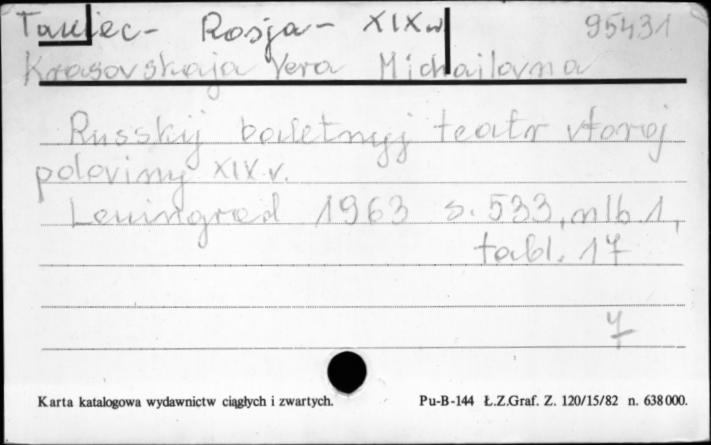 Taniec - Rosja - XIX w. 95431
Krasovskaja Vera Michajlovna
Russkij baletnyj teatr vtoroj
poloviny XIX v.
Leningrad 1963 s. 533, nlb. 1,
tabl. 17
7
Karta katalogowa wydawnictw ciągłych i zwartych. Pu-B-144 Ł.Z.Graf. Z. 120/15/82 n. 638000.